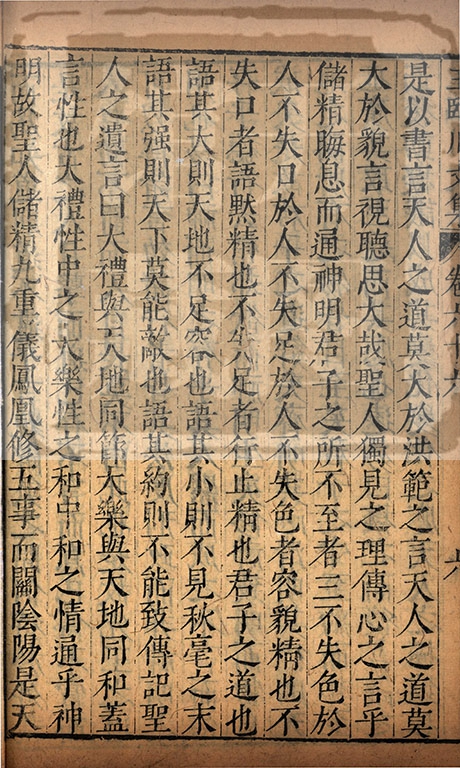 王臨川文集 卷六十六 六
是以書言天人之道莫大於洪範之言天人之道莫
大於貌言視聽思大哉聖人獨見之理傳心之言乎
儲精晦息而通神明君子之所不至者三不失色於
人不失口於人不失足於人不失色者容貌精也不
失口者語默精也不失足者行止精也君子之道也
語其大則天地不足容也語其小則不見秋毫之末
語其强則天下莫能敵也語其約則不能致傳記聖
人之遺言曰大禮與天地同節大樂與天地同和蓋
言性也大禮性中之大樂性之和中和之情通乎神
明故聖人儲精九重儀鳳凰修五事而關陰陽是天